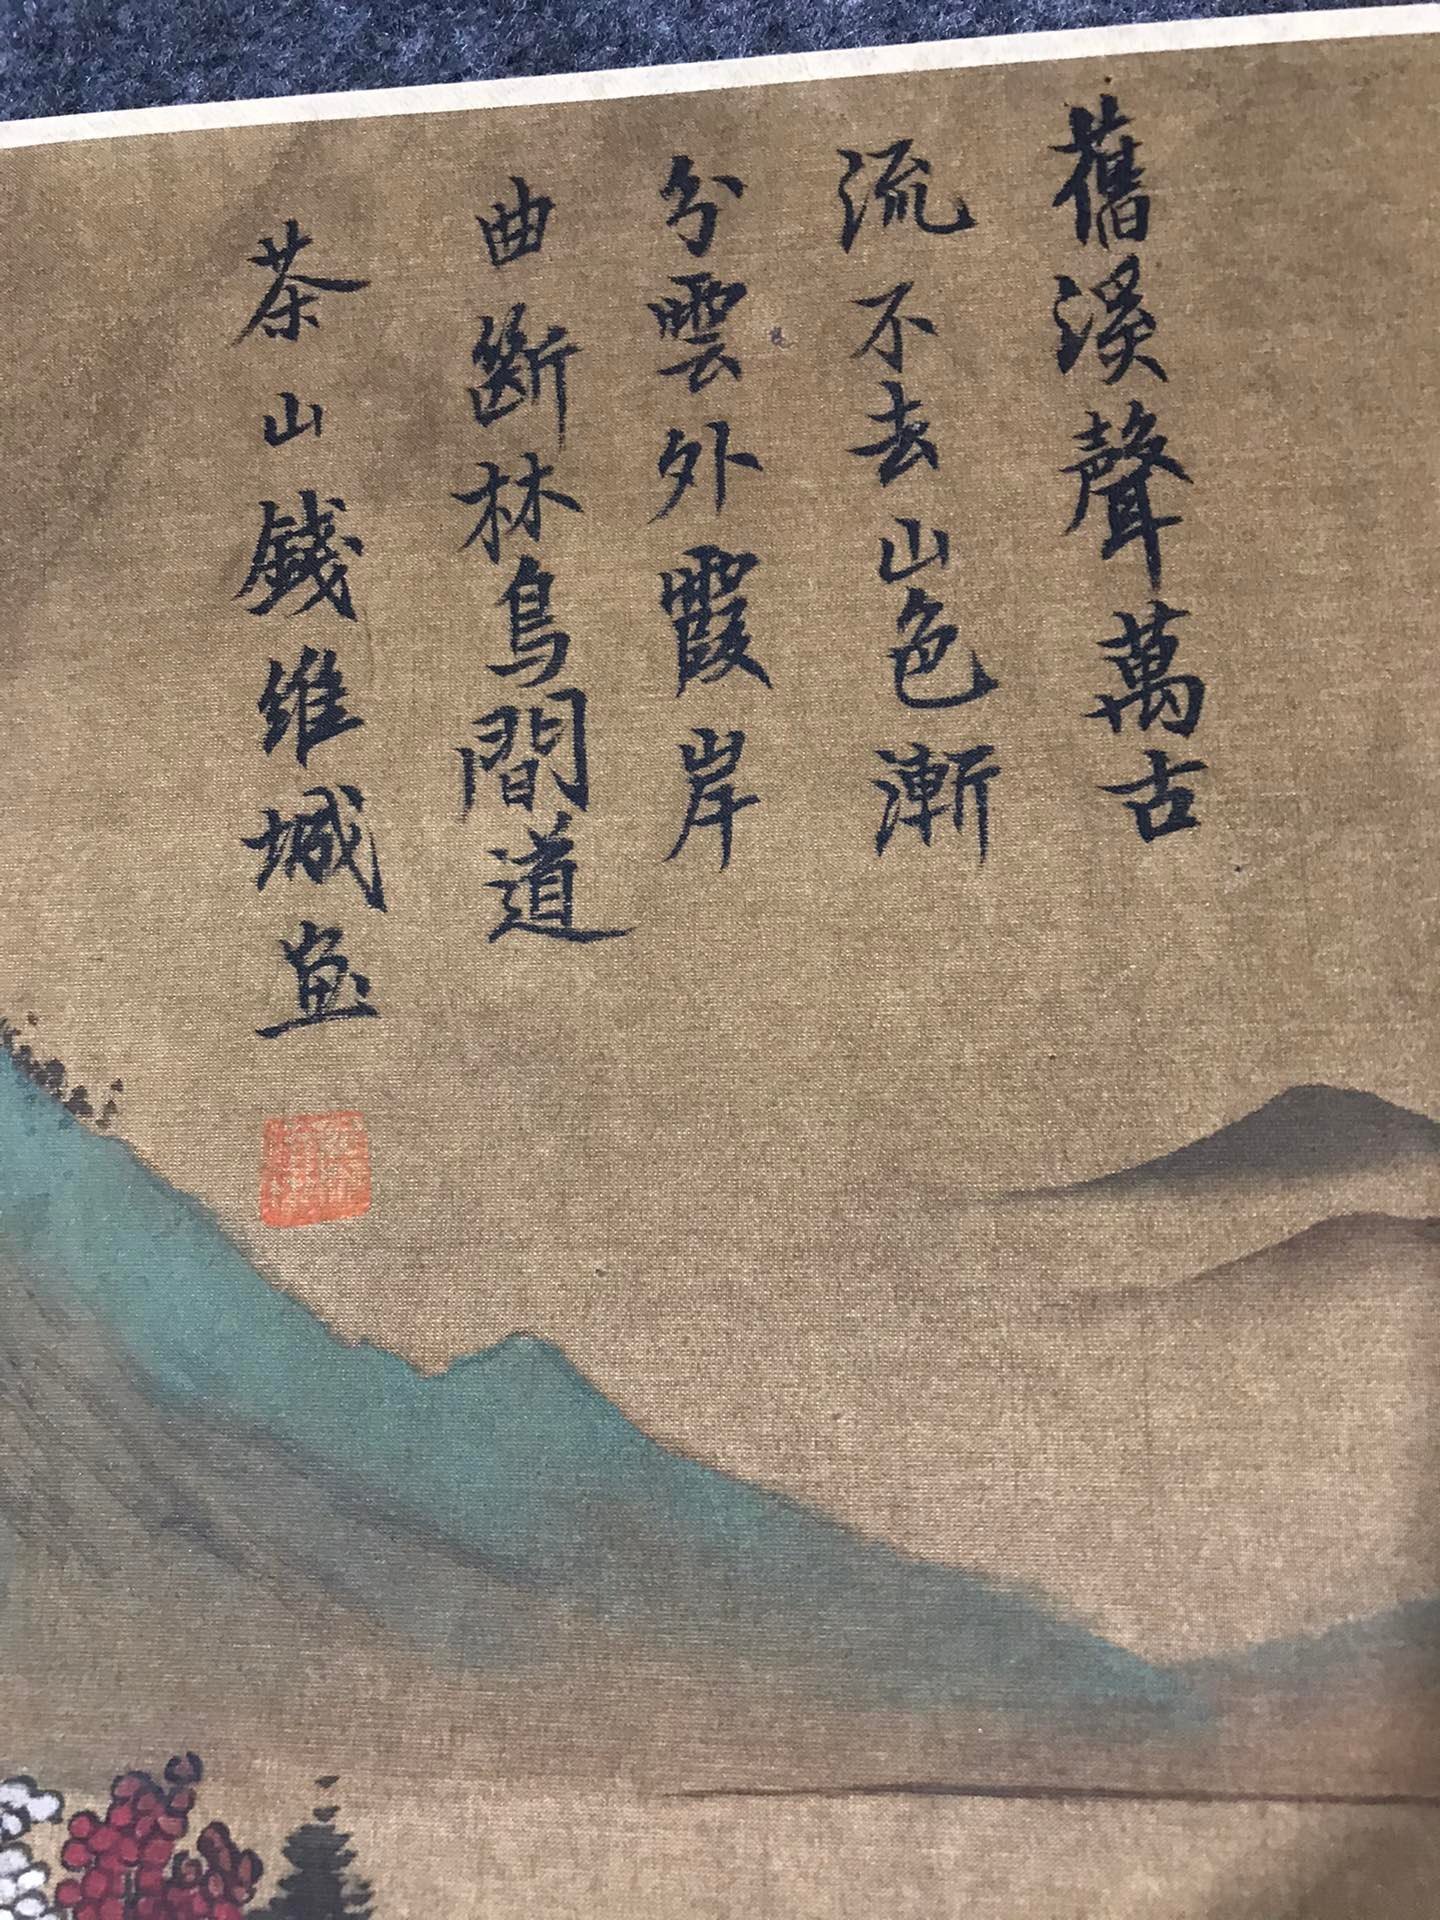 舊溪聲萬古
流不去山色漸
分雲外霞岸
曲斷林鳥間道
茶山錢維城画